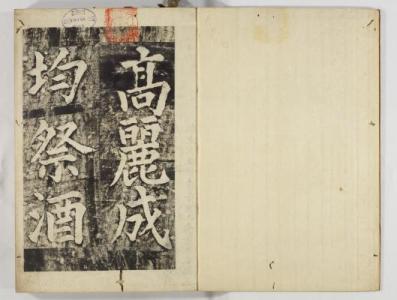 高麗成
均祭酒